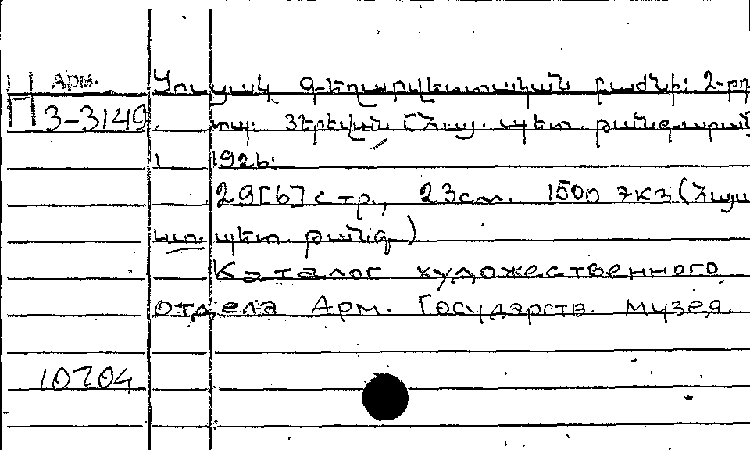 Арм.
П 3-3149
Ցուցակ Գեղարվեստական բաժնի: 2-րդ
տպ. Յերեվան (Հայ. պետ. թանգարան
1926.
29[6] стр., 23см. 1500 экз (Հայ
պետ. թանգ.)
Каталог художественного
отдела Арм. Государств. музея
10204